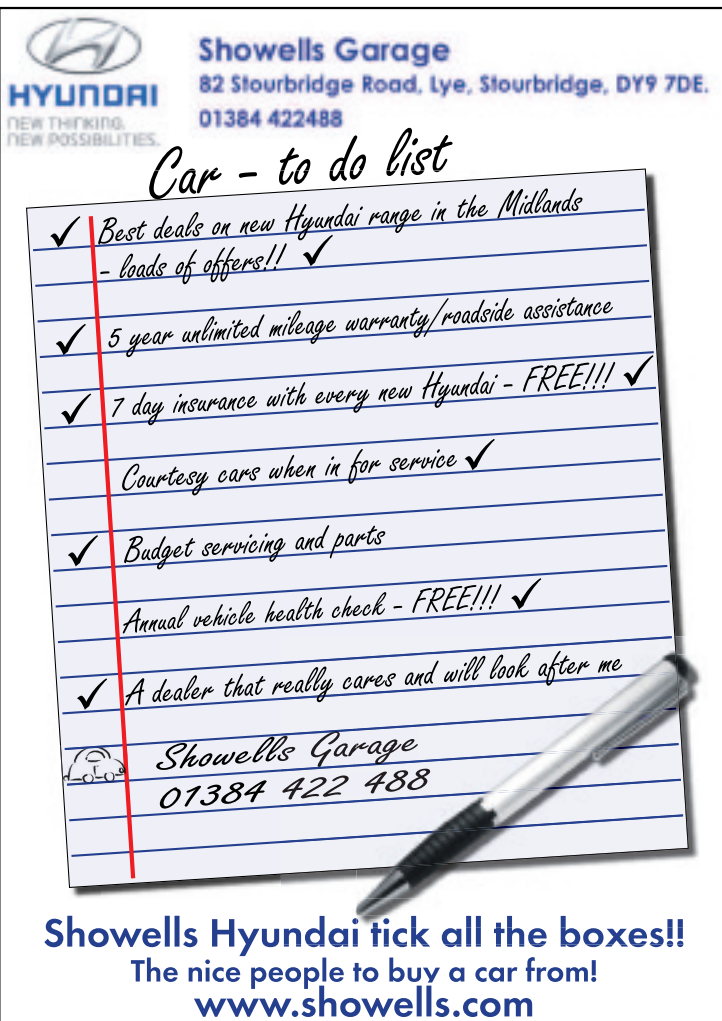 HYUNDAI
NEW THINKING.
NEW POSSIBILITIES.
Showells Garage
82 Stourbridge Road, Lye, Stourbridge, DY9 7DE.
01384 422488
Car - to do list
✓ Best deals on new Hyundai range in the Midlands
- loads of offers!! ✓
✓ 5 year unlimited mileage warranty/roadside assistance
✓ 7 day insurance with every new Hyundai - FREE!!! ✓
Courtesy cars when in for service ✓
✓ Budget servicing and parts
Annual vehicle health check - FREE!!! ✓
✓ A dealer that really cares and will look after me
Showells Garage
01384 422 488
Showells Hyundai tick all the boxes!!
The nice people to buy a car from!
www.showells.com